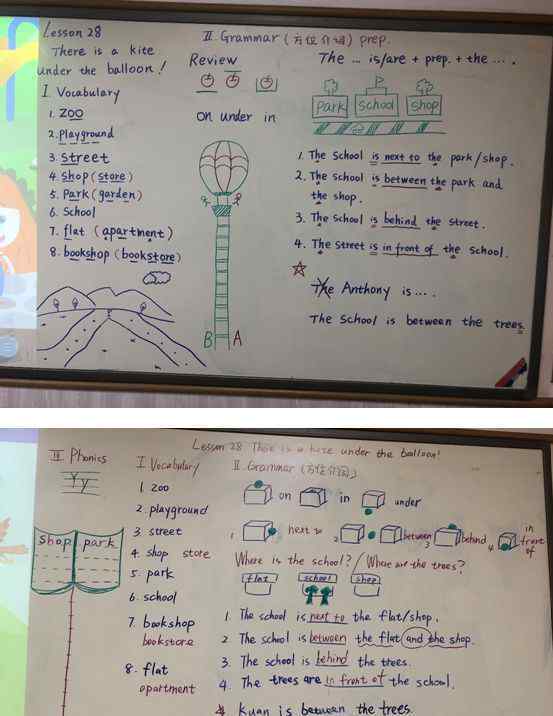 Lesson 28
There is a kite
under the balloon!
I. Vocabulary
1. zoo
2. playground
3. street
4. shop (store)
5. park (garden)
6. School
7. flat (apartment)
8. bookshop (bookstore)
Review
on under in
B A
II. Grammar (方位介词) prep.
The ... is/are + prep. + the ... .
park school shop
1. The school is next to the park/shop.
2. The school is between the park and
the shop.
3. The school is behind the street.
4. The street is in front of the school.
The Anthony is ... .
The school is between the trees.
Lesson 28 There is a kite under the balloon!
III Phonics
Yy
shop park
I Vocabulary
1. zoo
2. playground
3. street
4. shop store
5. park
6. school
7. bookshop
bookstore
8. flat
apartment
II. Grammar (方位介词)
on in under
1 next to 2 between 3 behind 4 in front of
Where is the school? / Where are the trees?
flat school shop
1. The school is next to the flat/shop.
2. The school is between the flat and the shop.
3. The school is behind the trees.
4. The trees are in front of the school.
Kuan is between the trees.